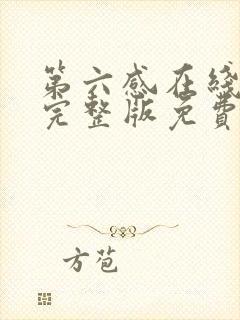 第六感在线
完整版免费
方苞